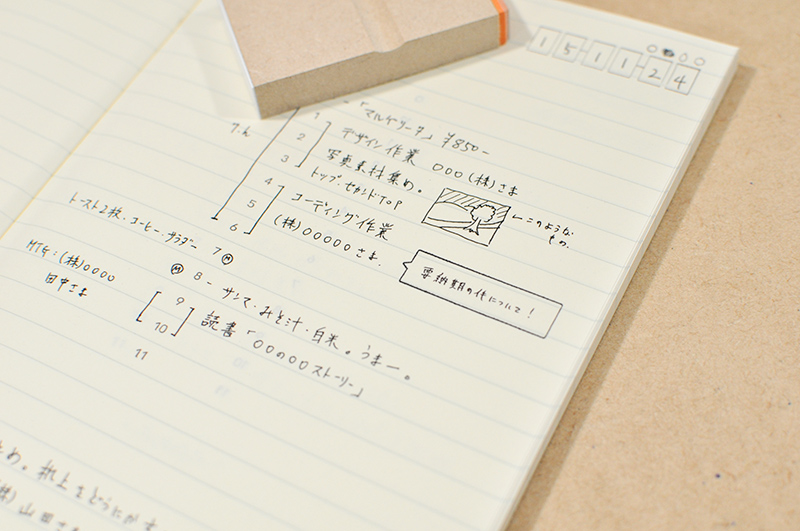 151124
1
-「マルゲリータ」¥850-
2
デザイン作業 〇〇〇(株)さま
3
写真素材集め。
トップ・セカンドTOP
←このような
もの。
4
5
コーディング作業
6
(株)〇〇〇〇〇さま
トースト2枚・コーヒー・サラダー 7
要納期の件について!
MTG:(株)〇〇〇〇
田中さま
8 - サンマ・みそ汁・白米。うまー。
9
10
読書「〇〇の〇〇ストーリー」
11
め。机上をどうにかす
(株)山田さ